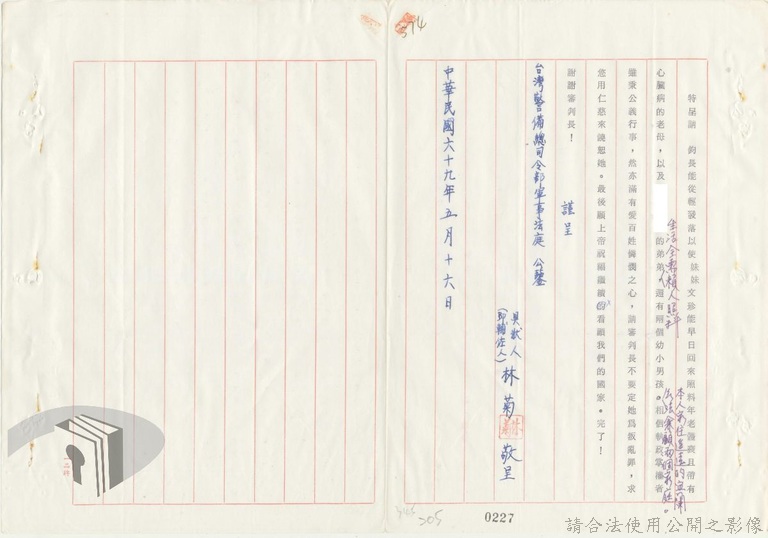 374
特呈請 鈞長能從輕發落以使妹妹文珍能早日回來照料年老邁衰且帶有
心臟病的老母,以及 的弟弟。還有兩個幼小男孩。相信執政掌權者
生活全需賴人照料
本人前往遙遠的宜蘭
雖秉公義行事,然亦滿有愛百姓憐憫之心,請審判長不要定她為叛亂罪,求
您用仁慈來饒恕她。最後願上帝祝福繼續的看顧我們的國家。完了!
謝謝審判長!
謹呈
台灣警備總司令部軍事法庭 公鑒
具狀人
(即輔佐人)
林菊 敬呈
中華民國六十九年五月十六日
205
0227
請合法使用公開之影像